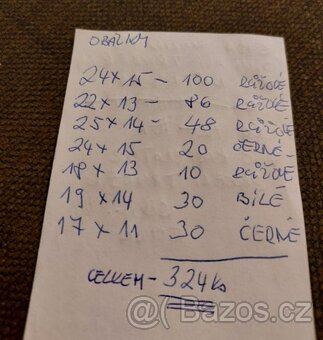 OBÁLKY
24 x 15 - 100 RŮŽOVÉ
22 x 13 - 86 RŮŽOVÉ
25 x 14 - 48 RŮŽOVÉ
24 x 15 20 ČERNÉ
18 x 13 10 RŮŽOVÉ
19 x 14 30 BÍLÉ
17 x 11 30 ČERNÉ
CELKEM - 324 ks
Bazos.cz